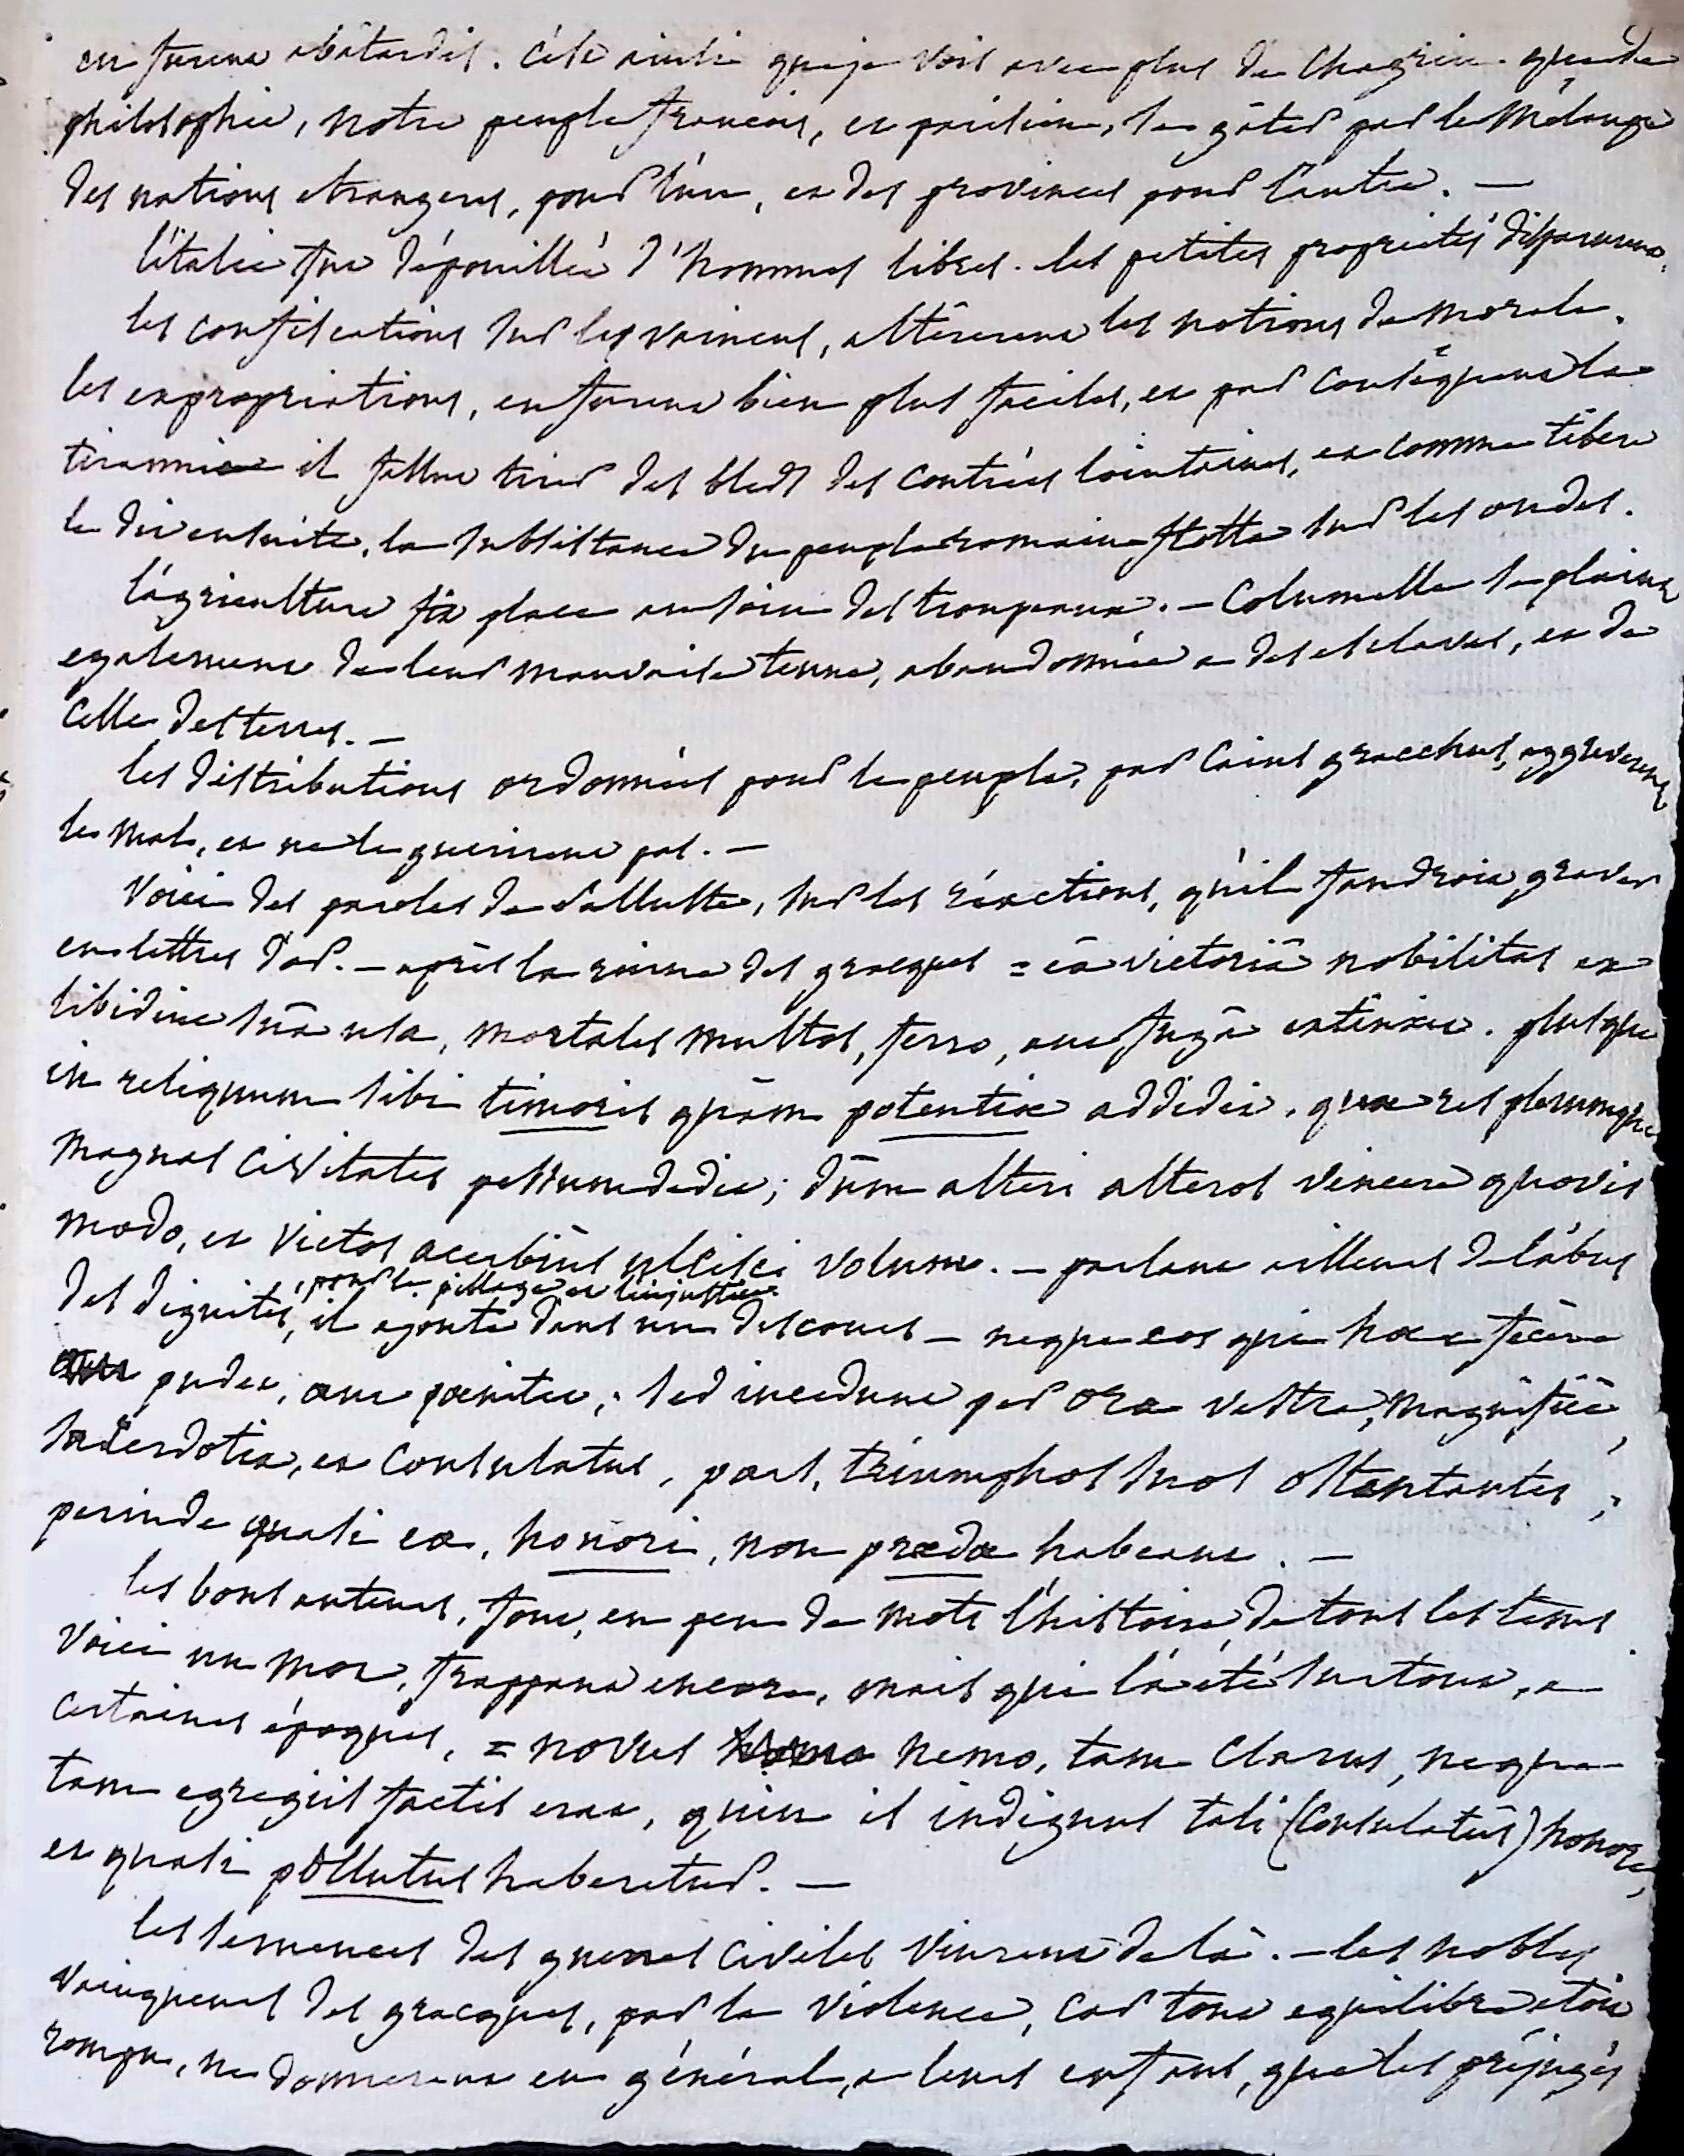 en furent abâtardis. C'est ainsi que je vois avec plus de chagrin que de
philosophie, notre peuple françois, et parisien, se gâter par le mélange
des nations etrangeres, pour l'un, et des provinces pour l'autre. —
l'italie fut dépouillée d'hommes libres. les petites propriétés disparurent.
les confiscations sur les vaincus, altérerent les notions de morale.
les expropriations, en furent bien plus faciles, et par conséquent la
tirannie il fallut tirer des bleds des contrées lointaines, et comme tibere
le dit ensuite, la subsistance du peuple romain flotta sur les ondes.
l'agriculture fit place au soin des troupeaux. — Columelle se plaint
egalement de leur mauvaise tenue, abandonnée a des esclaves, et de
celle des terres. —
les distributions ordonnées pour le peuple, par Caius gracchus, aggraverent
le mal, et ne le guerirent pas. —
Voici des paroles de Salluste, sur les réactions, qu'il faudroit graver
en lettres d'or. — après la ruine des gracques = eâ victoriâ nobilitas ex
libidine suâ usa, mortales multos, ferro, aut fugâ extinxit. plusque
in reliquum sibi timoris quàm potentiæ addidit. quæ res plerumque
magnas civitates pessumdedit; dùm alteri alteros vincere quovis
modo, et victos acerbiùs ulcisci volunt. — parlant ailleurs de l'abus
des dignités, pour le pillage et l'injustice, il ajoute dans un discours — neque eos qui hæc fecêre
pudet, aut pœnitet; sed incedunt per ora vestra, magnificè,
sacerdotia, et consulatus, pars, triumphos suos ostentantes;
perinde quasi ea, honori, non prædæ habeant. —
les bons auteurs, font, en peu de mots l'histoire, de tous les tems
Voici un mot, frappant encore, mais qui l'a été surtout, a
certaines époques, = novus nemo, tam clarus, neque
tam egregiis factis erat, quin is indignus tali (consulatûs) honore,
et quasi pollutus haberetur. —
les semences des guerres civiles vinrent de là. — les nobles
vainqueurs des gracques, par la violence, car tout equilibre etoit
rompu, ne donnerent en général, a leurs enfans, que les préjugés